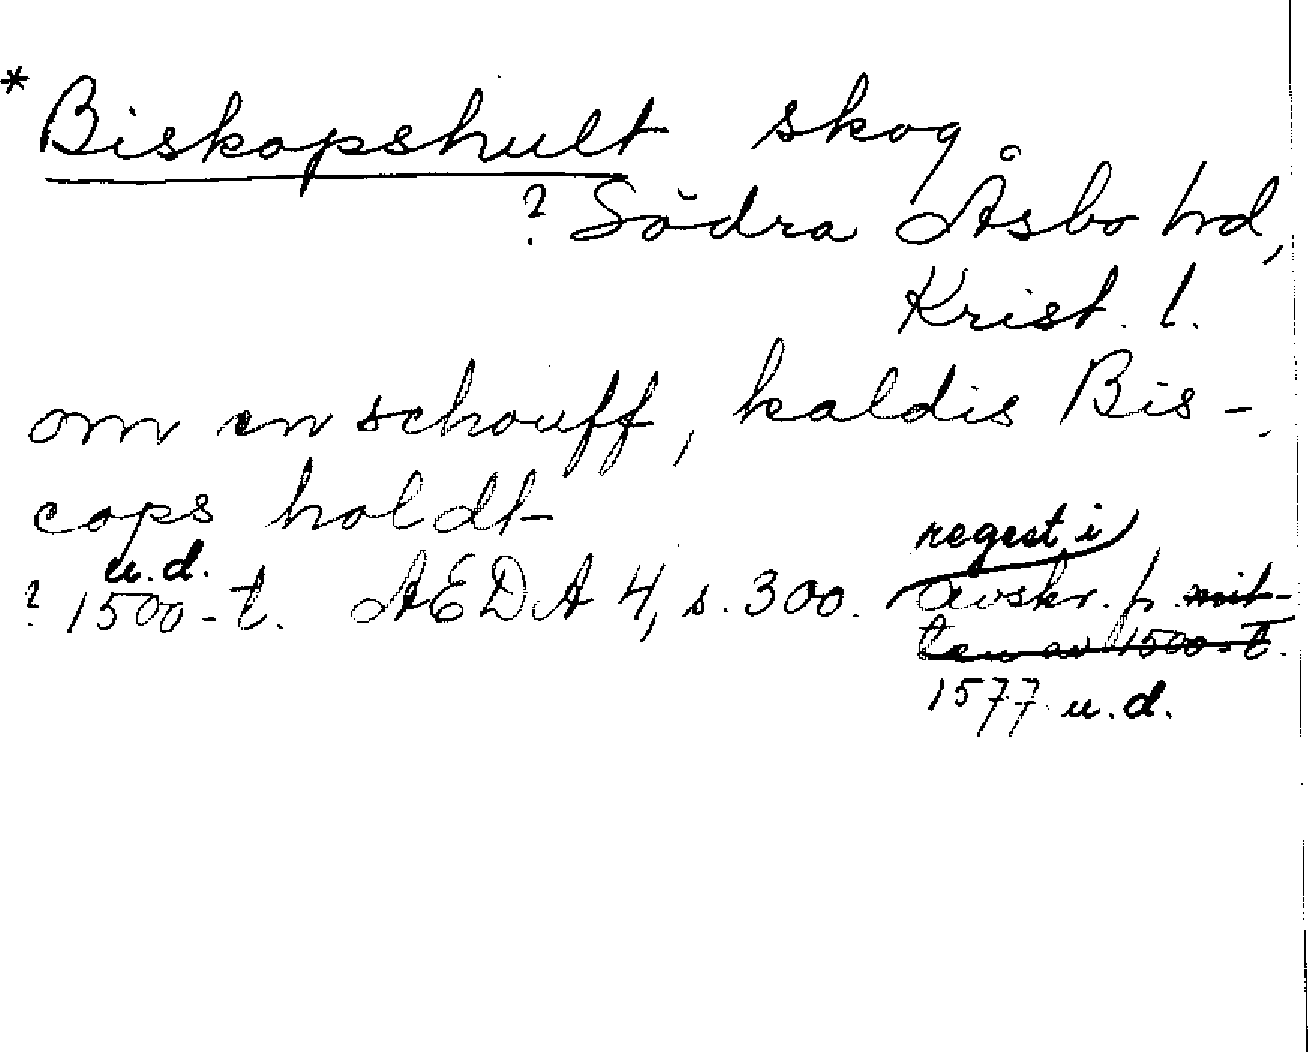 * Biskopshult skog
? Södra Åsbo hd,
Krist. l.
om en schouff, kaldis Bis-
cops holdt
u.d.
? 1500-t. AEDA 4, s. 300. regest i
avskr. fr. mit-
ten av 1500-t.
1577 u.d.